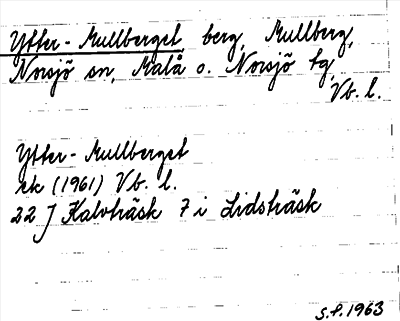 Ytter-Mullberget, berg, Mullberg,
Norsjö sn, Malå o. Norsjö tg,
Vb. l.
Ytter-Mullberget
ek (1961) Vb. l.
22 J Kalvträsk 7 i Lidsträsk
S.P. 1963